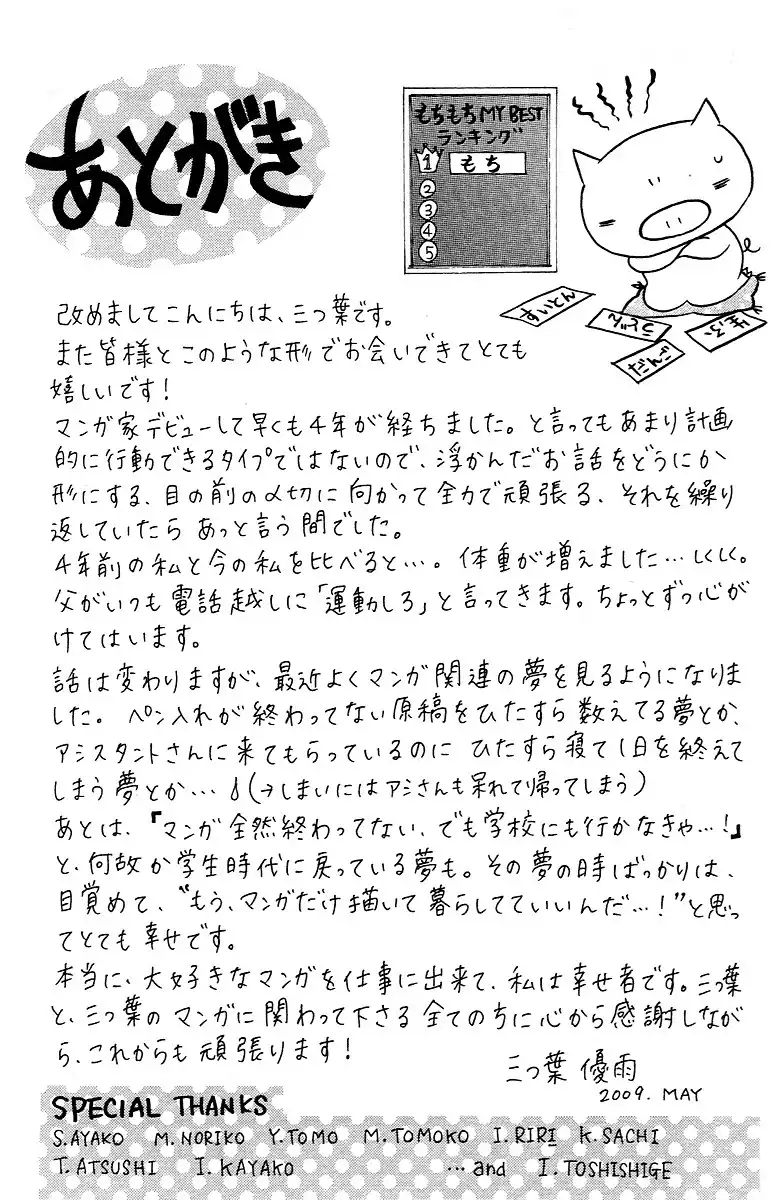 あとがき
もちもちMY BEST
ランキング
1 もち
2
3
4
5
すいとん
ぞうに
だんご
きんぶ
改めましてこんにちは、三つ葉です。
また皆様とこのような形でお会いできてとても
嬉しいです!
マンガ家デビューして早くも4年が経ちました。と言ってもあまり計画
的に行動できるタイプではないので、浮かんだお話をどうにか
形にする、目の前の〆切に向かって全力で頑張る、それを繰り
返していたらあっと言う間でした。
4年前の私と今の私を比べると…。体重が増えました…しくしく。
父がいつも電話越しに「運動しろ」と言ってきます。ちょっとずつ心が
けてはいます。
話は変わりますが、最近よくマンガ関連の夢を見るようになりま
した。ペン入れが終わってない原稿をひたすら数えてる夢とか、
アシスタントさんに来てもらっているのに ひたすら寝て1日を終えて
しまう夢とか…(→しまいにはアシさんも呆れて帰ってしまう)
あとは、『マンガ全然終わってない、でも学校にも行かなきゃ…!』
と、何故か学生時代に戻っている夢も。その夢の時ばっかりは、
目覚めて、〝もう、マンガだけ描いて暮らしてていいんだ…!〟と思っ
てとても幸せです。
本当に、大好きなマンガを仕事に出来て、私は幸せ者です。三つ葉
と、三つ葉のマンガに関わって下さる全ての方に心から感謝しなが
ら、これからも頑張ります!
三つ葉 優雨
2009. MAY
SPECIAL THANKS
S.AYAKO M.NORIKO Y.TOMO M.TOMOKO I.RIRI K.SACHI
T.ATSUSHI I.KAYAKO …and I.TOSHISHIGE